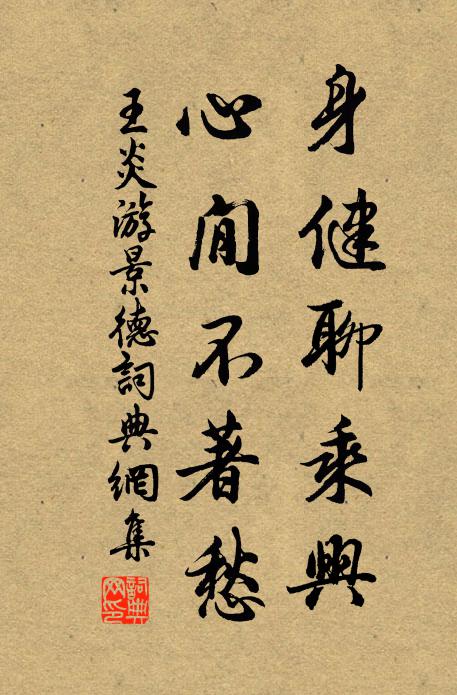 身健聊乘興
心閒不著愁
王炎游景德詞典網集
詞典網印